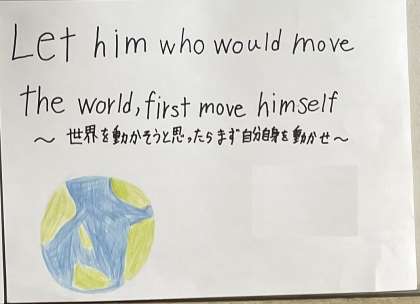 Let him who would move
the world, first move himself
～ 世界を動かそうと思ったらまず自分自身を動かせ～